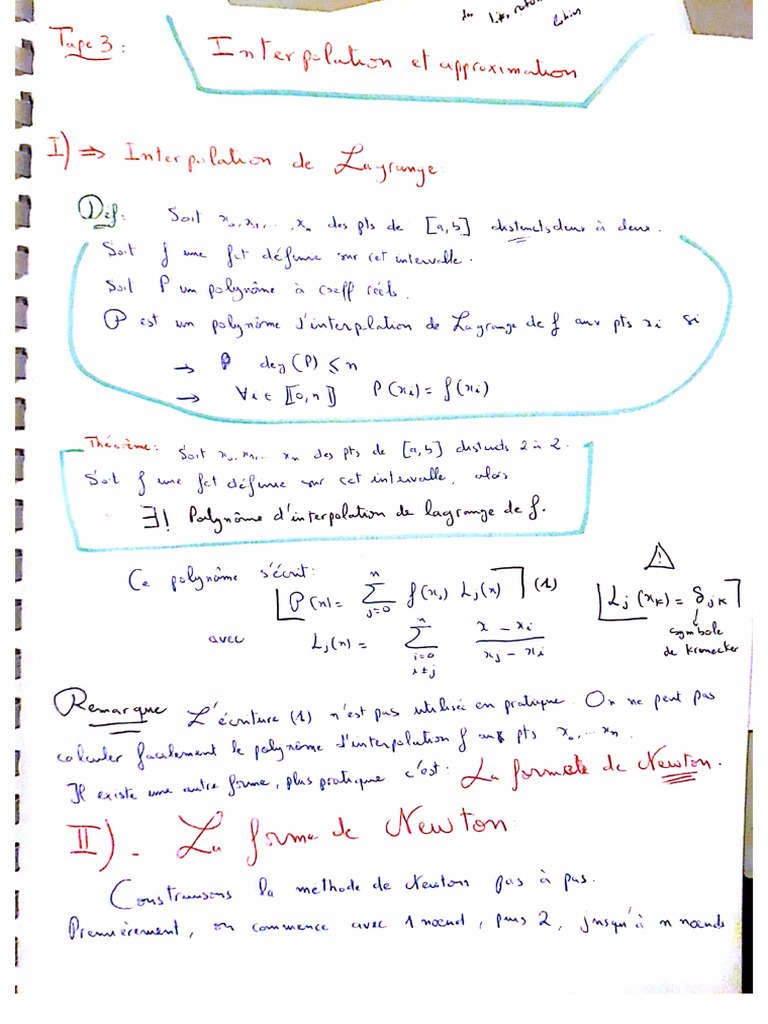 Tape 3 :
Interpolation et approximation
I) ⇒ Interpolation de Lagrange
Déf: Soit x₀, x₁, ..., xₙ des pts de [a,b] distincts deux à deux.
Soit f une fct définie sur cet intervalle.
Soit P un polynôme à coeff réels.
P est un polynôme d'interplation de Lagrange de f aux pts xi si
→ P deg (P) ≤ n
→ ∀i ∈ ⟦0,n⟧ P(xi) = f(xi)
Théorème: Soit x₀, x₁, ... xₙ des pts de [a,b] distincts 2 à 2.
Soit f une fct définie sur cet intervalle, alors
∃! Polynôme d'interpolation de lagrange de f.
Ce polynôme s'écrit:
P(x) = ∑_{j=0}^{n} f(xj) Lj(x) (1)
⚠ Lj(xK) = δjK
symbole de kronecker
avec Lj(x) = ∑_{i=0, i≠j}^{n} (x - xi)/(xj - xi)
Remarque L'écriture (1) n'est pas utilisée en pratique. On ne peut pas
calculer facilement le polynôme d'interpolation f aux pts x₀, ... xₙ.
Il existe une autre forme, plus pratique c'est: La forme de Newton.
II). La forme de Newton
Construisons la methode de Newton pas à pas.
Premièrement, on commence avec 1 nœud, puis 2, jusqu'à n nœuds